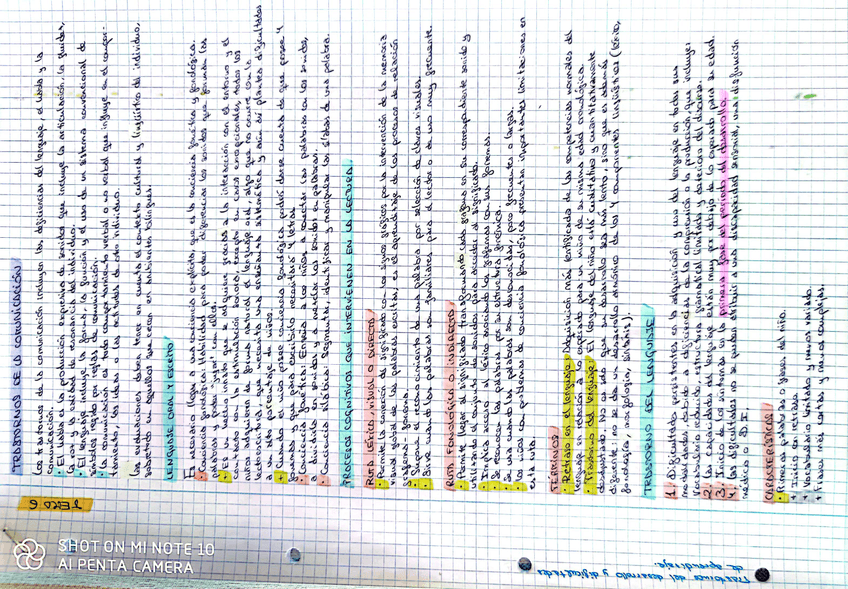 Trastornos del desarrollo y dificultades
de aprendizaje.
TEMA 6
TRASTORNOS DE LA COMUNICACIÓN
Los trastornos de la comunicación incluyen las deficiencias del lenguaje, el habla y la
comunicación.
El habla es la producción expresiva de sonidos que incluye la articulación, la fluidez,
la voz y la calidad de resonancia del individuo.
El lenguaje incluye la forma, la función y el uso de un sistema convencional de
símbolos regido por reglas de comunicación.
La comunicación es todo comportamiento verbal o no verbal que influye en el compor-
tamiento, las ideas o las actitudes de otro individuo.
Las evaluaciones deben tener en cuenta el contexto cultural y lingüístico del individuo,
sobretodo en aquellos que crecen en ambientes bilingües.
LENGUAJE ORAL Y ESCRITO
Es necesario llegar a una conciencia explícita, que es la conciencia fonética y fonológica.
Conciencia fonológica: Habilidad para poder diferenciar los sonidos que forman las
palabras y poder "jugar" con ellos.
contexto con estimulación sonora, excepto en casos excepcionales, todos los
niños adquieren de forma natural el lenguaje oral, algo que no ocurre con la
lectoescritura, que necesita una enseñanza sistemática y aún así plantea dificultades
a un alto porcentaje de niños.
Cuando el niño posee conciencia fonológica podrá darse cuenta de que posee 4
fonemas que para escribirlo necesitará 4 letras.
Conciencia fonética: Enseña a los niños a conectar las palabras con los sonidos,
a dividirla en sonidos y a mezclar los sonidos en palabras.
Conciencia silábica: Segmentar, identificar y manipular las sílabas de una palabra.
PROCESOS COGNITIVOS QUE INTERVIENEN EN LA LECTURA.
RUTA LÉXICA, VISUAL O DIRECTA
Permite la conexión del significado con los signos gráficos por la intervención de la memoria
visual global de las palabras escritas, es el aprendizaje de los procesos de relación
grafema-fonema.
Supone el reconocimiento de una palabra por selección de claves visuales.
Sirve cuando las palabras son familiares para el lector o de uso muy frecuente.
RUTA FONOLÓGICA O INDIRECTA
Permite llegar al significado transformando cada grafema en su correspondiente sonido y
utilizando ese sonido para acceder al significado.
Implica acceso al léxico asociando los grafemas con sus fonemas.
Se reconocen las palabras por su estructura grafémica.
Se usa cuando las palabras son desconocidas, poco frecuentes o largas.
Los niños con problemas de conciencia fonológica presentan importantes limitaciones en
esta ruta.
TÉRMINOS
Retraso en el lenguaje: Adquisición más lentificada de las competencias normales del
lenguaje en relación a lo esperado para un niño de su misma edad cronológica.
Trastorno del lenguaje: El lenguaje del niño está cualitativa y cuantitativamente
desajustado, no es solo que su desarrollo sea más lento, sino que es además
diferente: no se da un desarrollo armónico de los 4 componentes lingüísticos (léxico,
fonología, morfología, sintaxis).
TRASTORNO DEL LENGUAJE
1. Dificultades persistentes en la adquisición y uso del lenguaje en todas sus
modalidades debido a deficiencias de la comprensión o la producción, que incluye:
Vocabulario reducido, estructura gramatical limitada y deterioro del discurso.
2. Las capacidades del lenguaje están muy por debajo de lo esperado para su edad.
3. Inicio de los síntomas en la primeras fases del período del desarrollo.
4. Las dificultades no se pueden atribuir a una discapacidad sensorial, una disfunción
médica o D.I.
CARACTERÍSTICAS
+ Inicio con retraso.
+ Vocabulario limitado y menos variado.
+ Frases más cortas y menos complejas.
SHOT ON MI NOTE 10
AI PENTA CAMERA